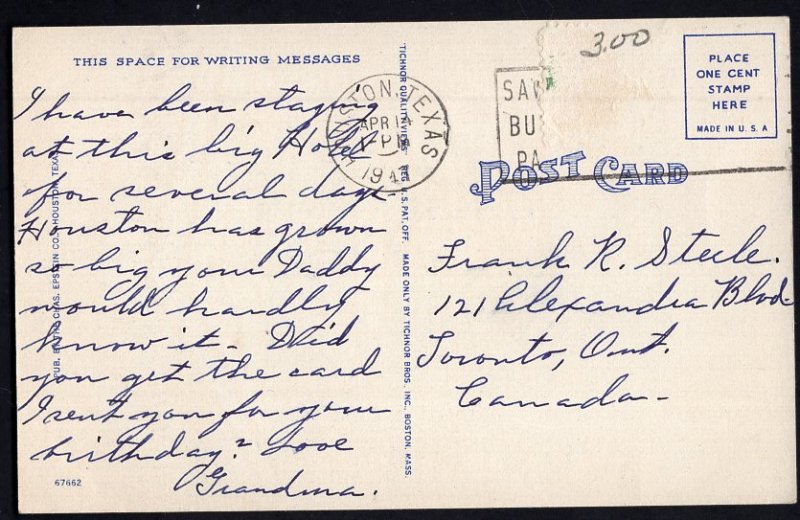 THIS SPACE FOR WRITING MESSAGES
I have been staying
at this big Hotel
for several days.
Houston has grown
so big your Daddy
would hardly
know it - Did
you get the card
I sent you for your
birthday? Love
Grandma.
67662
PUB. BY CHAS. EPSTEIN CO., HOUSTON, TEXAS
TICHNOR QUALITY VIEWS REG. U.S. PAT. OFF. MADE ONLY BY TICHNOR BROS. INC., BOSTON, MASS.
HOUSTON, TEXAS
APR
PM
194
SAV
BU
PA
3.00
PLACE
ONE CENT
STAMP
HERE
MADE IN U.S.A
POST CARD
Frank R. Steele.
121 Alexandra Blvd
Toronto, Ont.
Canada-